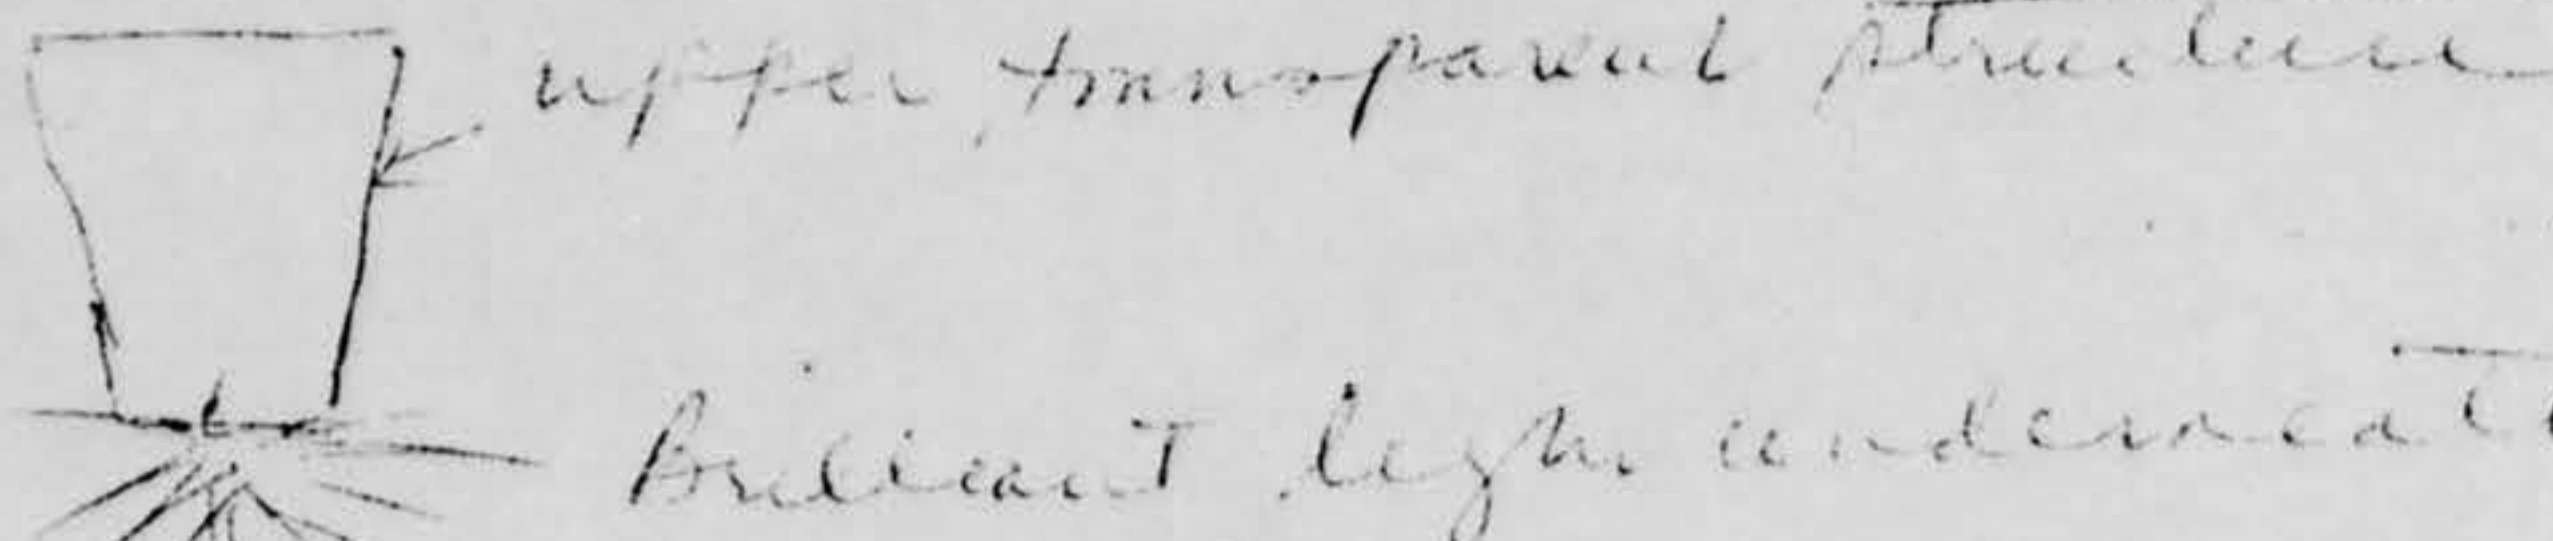 upper transparent structure
Brilliant light underneath